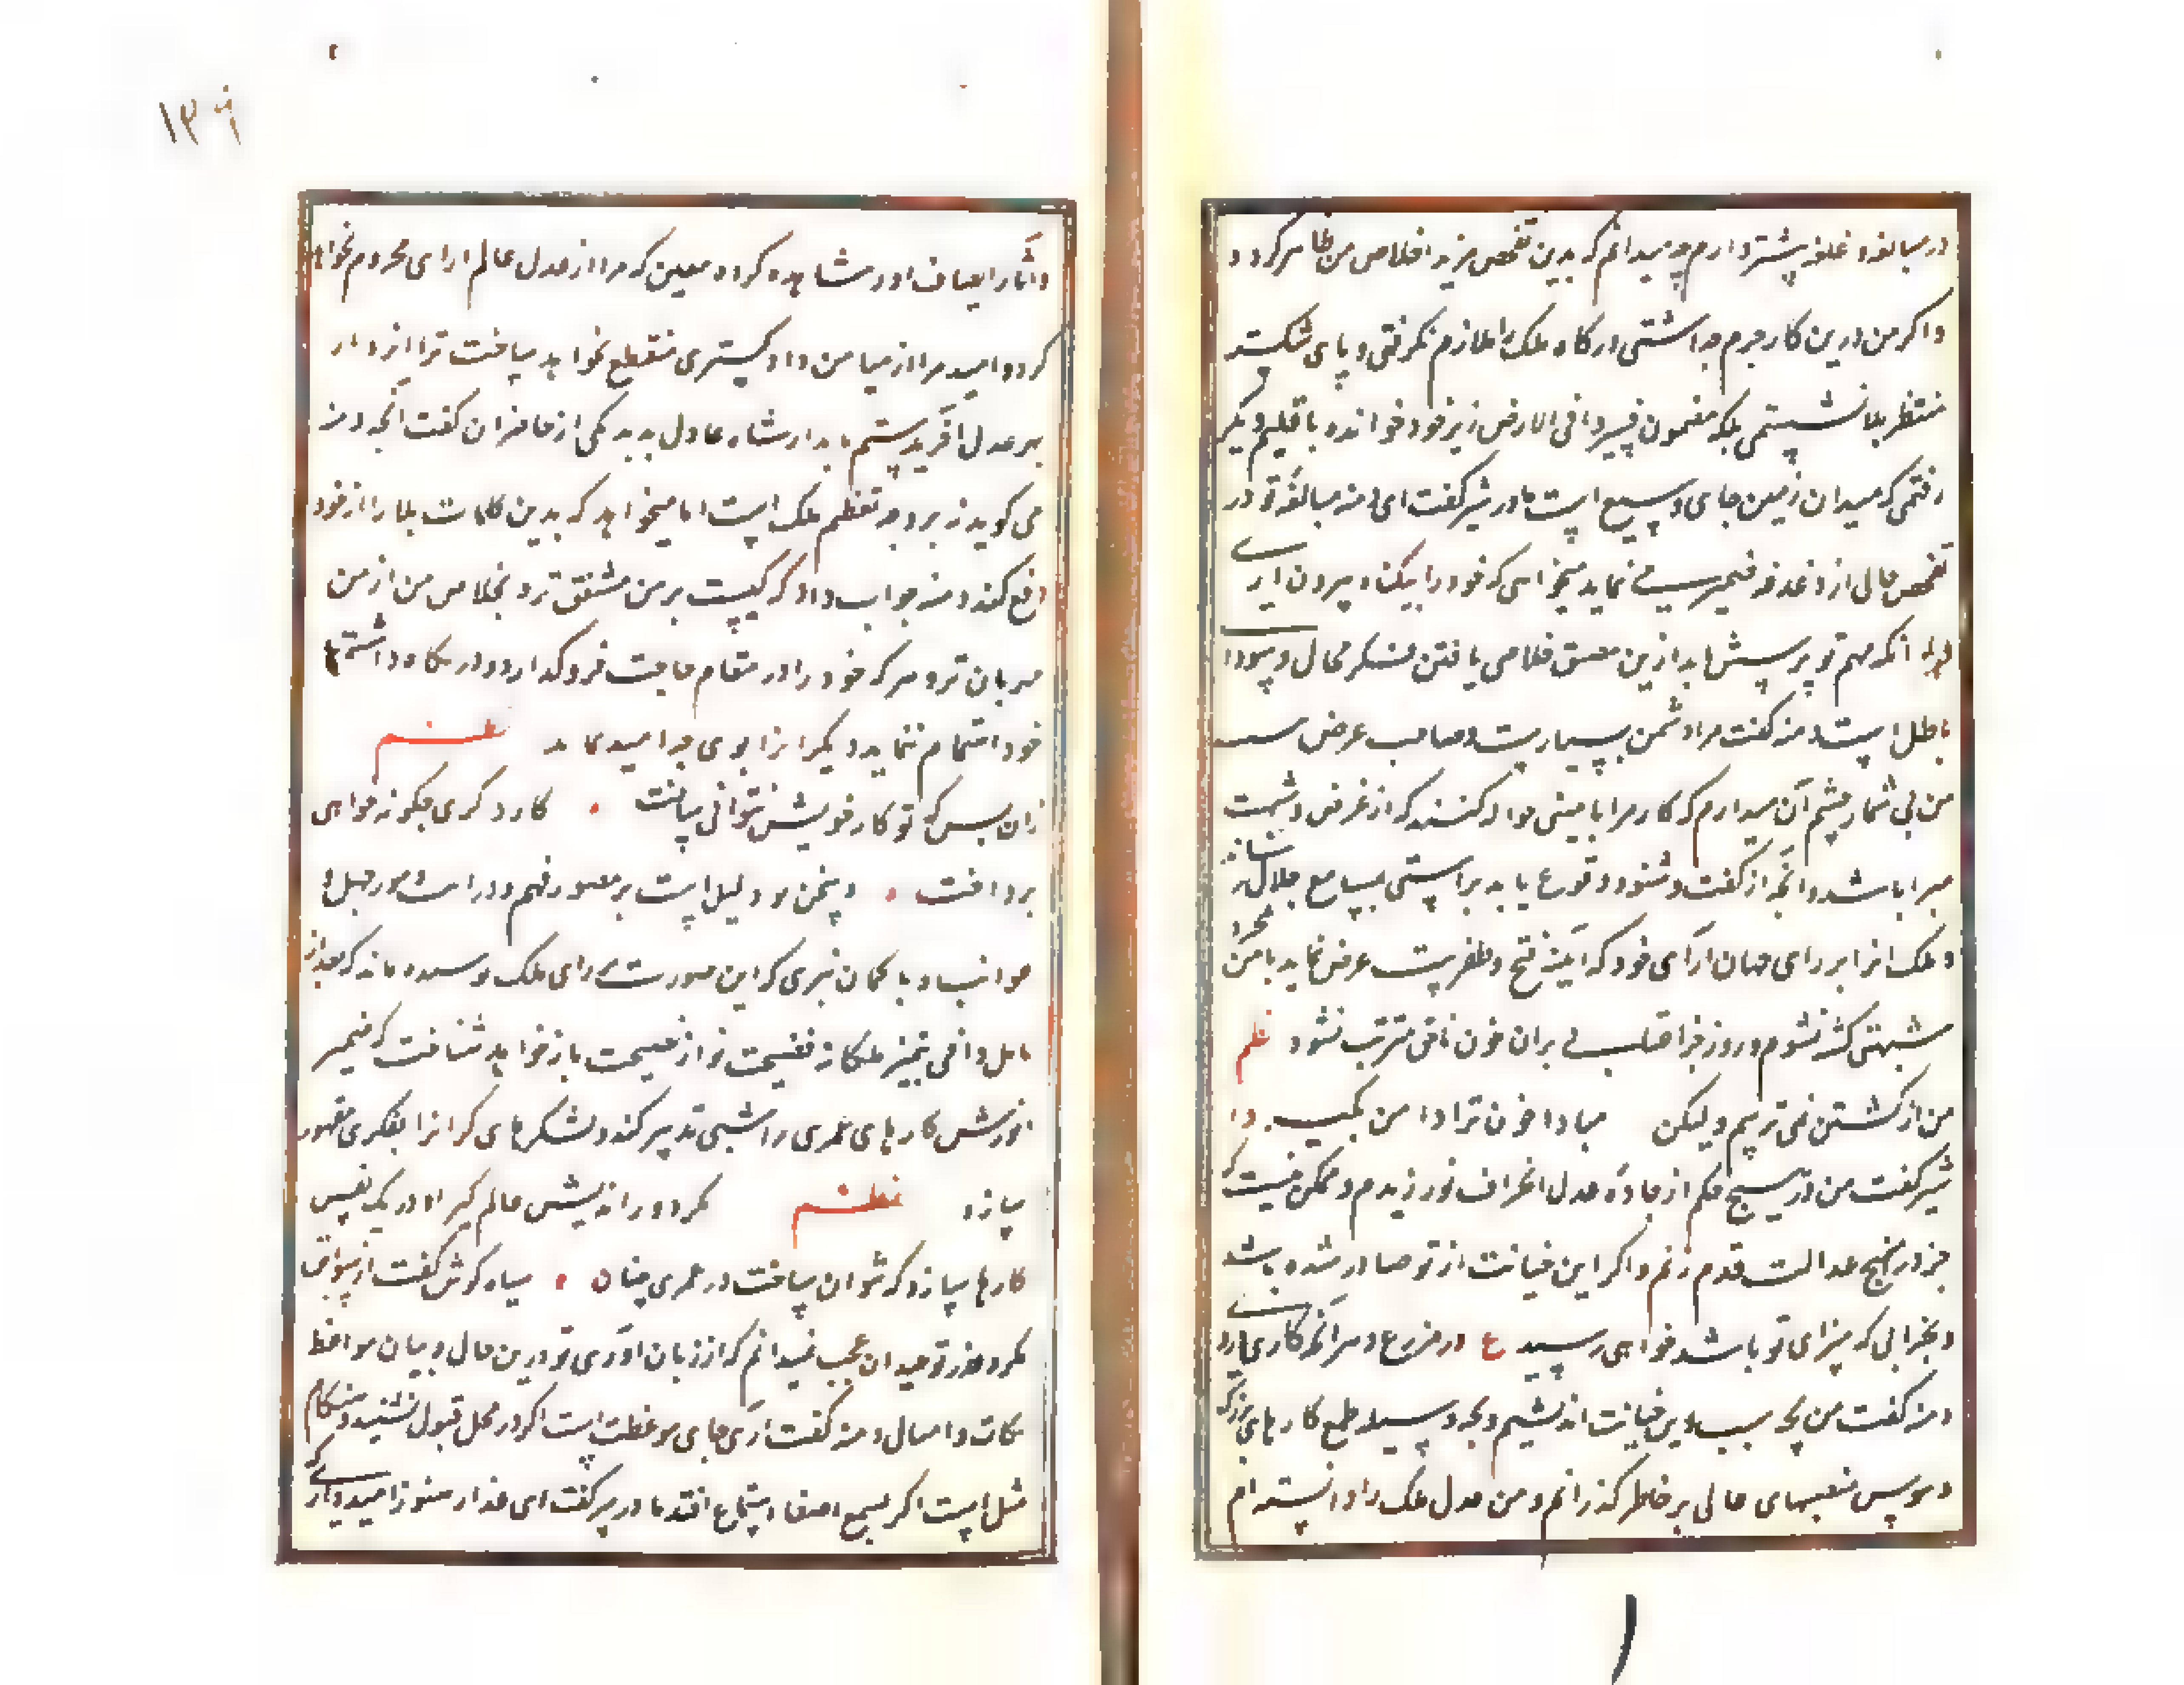 در مبالغه و غلو بیشتر دارم چه میدانم که بدین تفحص مزید اخلاص من ظاهر کردد
و اکر من درین کار جرم داشتمی درکاه ملک را ملازم نکرفتمی و پای شکسته
منتظر بلا ننشستمی بلکه مضمون فسیروا فی الارض زیر خود خوانده باقلیم دیکر
رفتمی که میدان زمین جای وسیع است مادر شیر کفت ای دمنه مبالغه تو در
تفحص خالی از دغدغه ضمیری نمی نماید میخواهی که خود را بیکناه بیرون اری
انکه مهم تو پرسش باید ازین مضیق خلاصی یافتن فکر محال و سودا
باطل است دمنه کفت مرا دشمن بسیارست و صاحب غرض
من بی شمار چشم آن میدارم که کار مرا بامینی حواله کنند که از غرض و شبهت
مبرا باشد و انچه از کفت و شنود وقوع یابد براستی بمسامع جلال رساند
و ملک انرا بر رای جهان آرای خود که آینه فتح و ظفرست عرض نماید تا من مجرد
شبهتی کشته نشوم و روز جزا عقابی بران خون ناحق مترتب نشود نظم
من از کشتن نمی ترسم ولیکن مبادا خون ترا دامن بکیرد
شیر کفت من در هیچ حکم از جاده عدل انحراف نورزیدم و ممکن نیست که
جز در نهج عدالت قدم زنم و اکر این خیانت از تو صادر شده باشد
و بجزایی که سزای تو باشد خواهی رسید ع در مزرع دهر انچه کاری
دمنه کفت من بچه سبب این خیانت اندیشم و بچه وسیله طمع کارهای بزرک
و هوس منصبهای عالی بر خاطر کذرانم و من عدل ملک را دانسته ام
۱۳۶
و آثار انصاف او را مشاهده کرده معین که مرا از عدل عالم ارای محروم نخواهد
کرد و امید مرا از میامن دادکستری منقطع نخواهد ساخت ترا ایزد از
بهر عدل آفریدست باید از شاه عادل یکی از حاضران کفت انچه دمنه
می کوید نه بر وجه تعظیم ملک است اما میخواهد که بدین کلمات بلا را از خود
دفع کند دمنه جواب داد که کیست بر من مشفق تر و بخلاص من از من
مهربان تر و هر که خود را در مقام حاجت فرو کذارد و در نکاه داشت
خود اهتمام ننماید دیکرانرا بوی چه امید ماند نظم
زان پس که تو کار خویش نتوانی ساخت کار دکری چکونه خواهی
پرداخت و سخن تو دلیل است بر قصور فهم و وفور جهل و
غوایت و تا کمان نبری که این صورت برای ملک پوشیده ماند که بعد از
تامل وافی تمیز ملکانه فضیحت تو از نصیحت باز خواهد شناخت که ضمیر
انورش کارهای عمری را بشبی تدبیر کند و لشکرهای کرانرا بفکری مقهور
سازد نظم فکر دوراندیش عالم کیر او در یک نفس
کارها سازد که نتوان ساخت در عمری چنان سیاه کوش کفت از سوابق
مکر و غدر تو چندان عجب نمیدانم که از زبان آوری تو درین حال و بیان مواعظ
نکات و امثال دمنه کفت آری جای موعظت است اکر در محل قبول نشیند و هنکام
مثل است اکر بسمع اصغا و استماع افتد مادر شیر کفت ای غدار هنوز امید میداری که